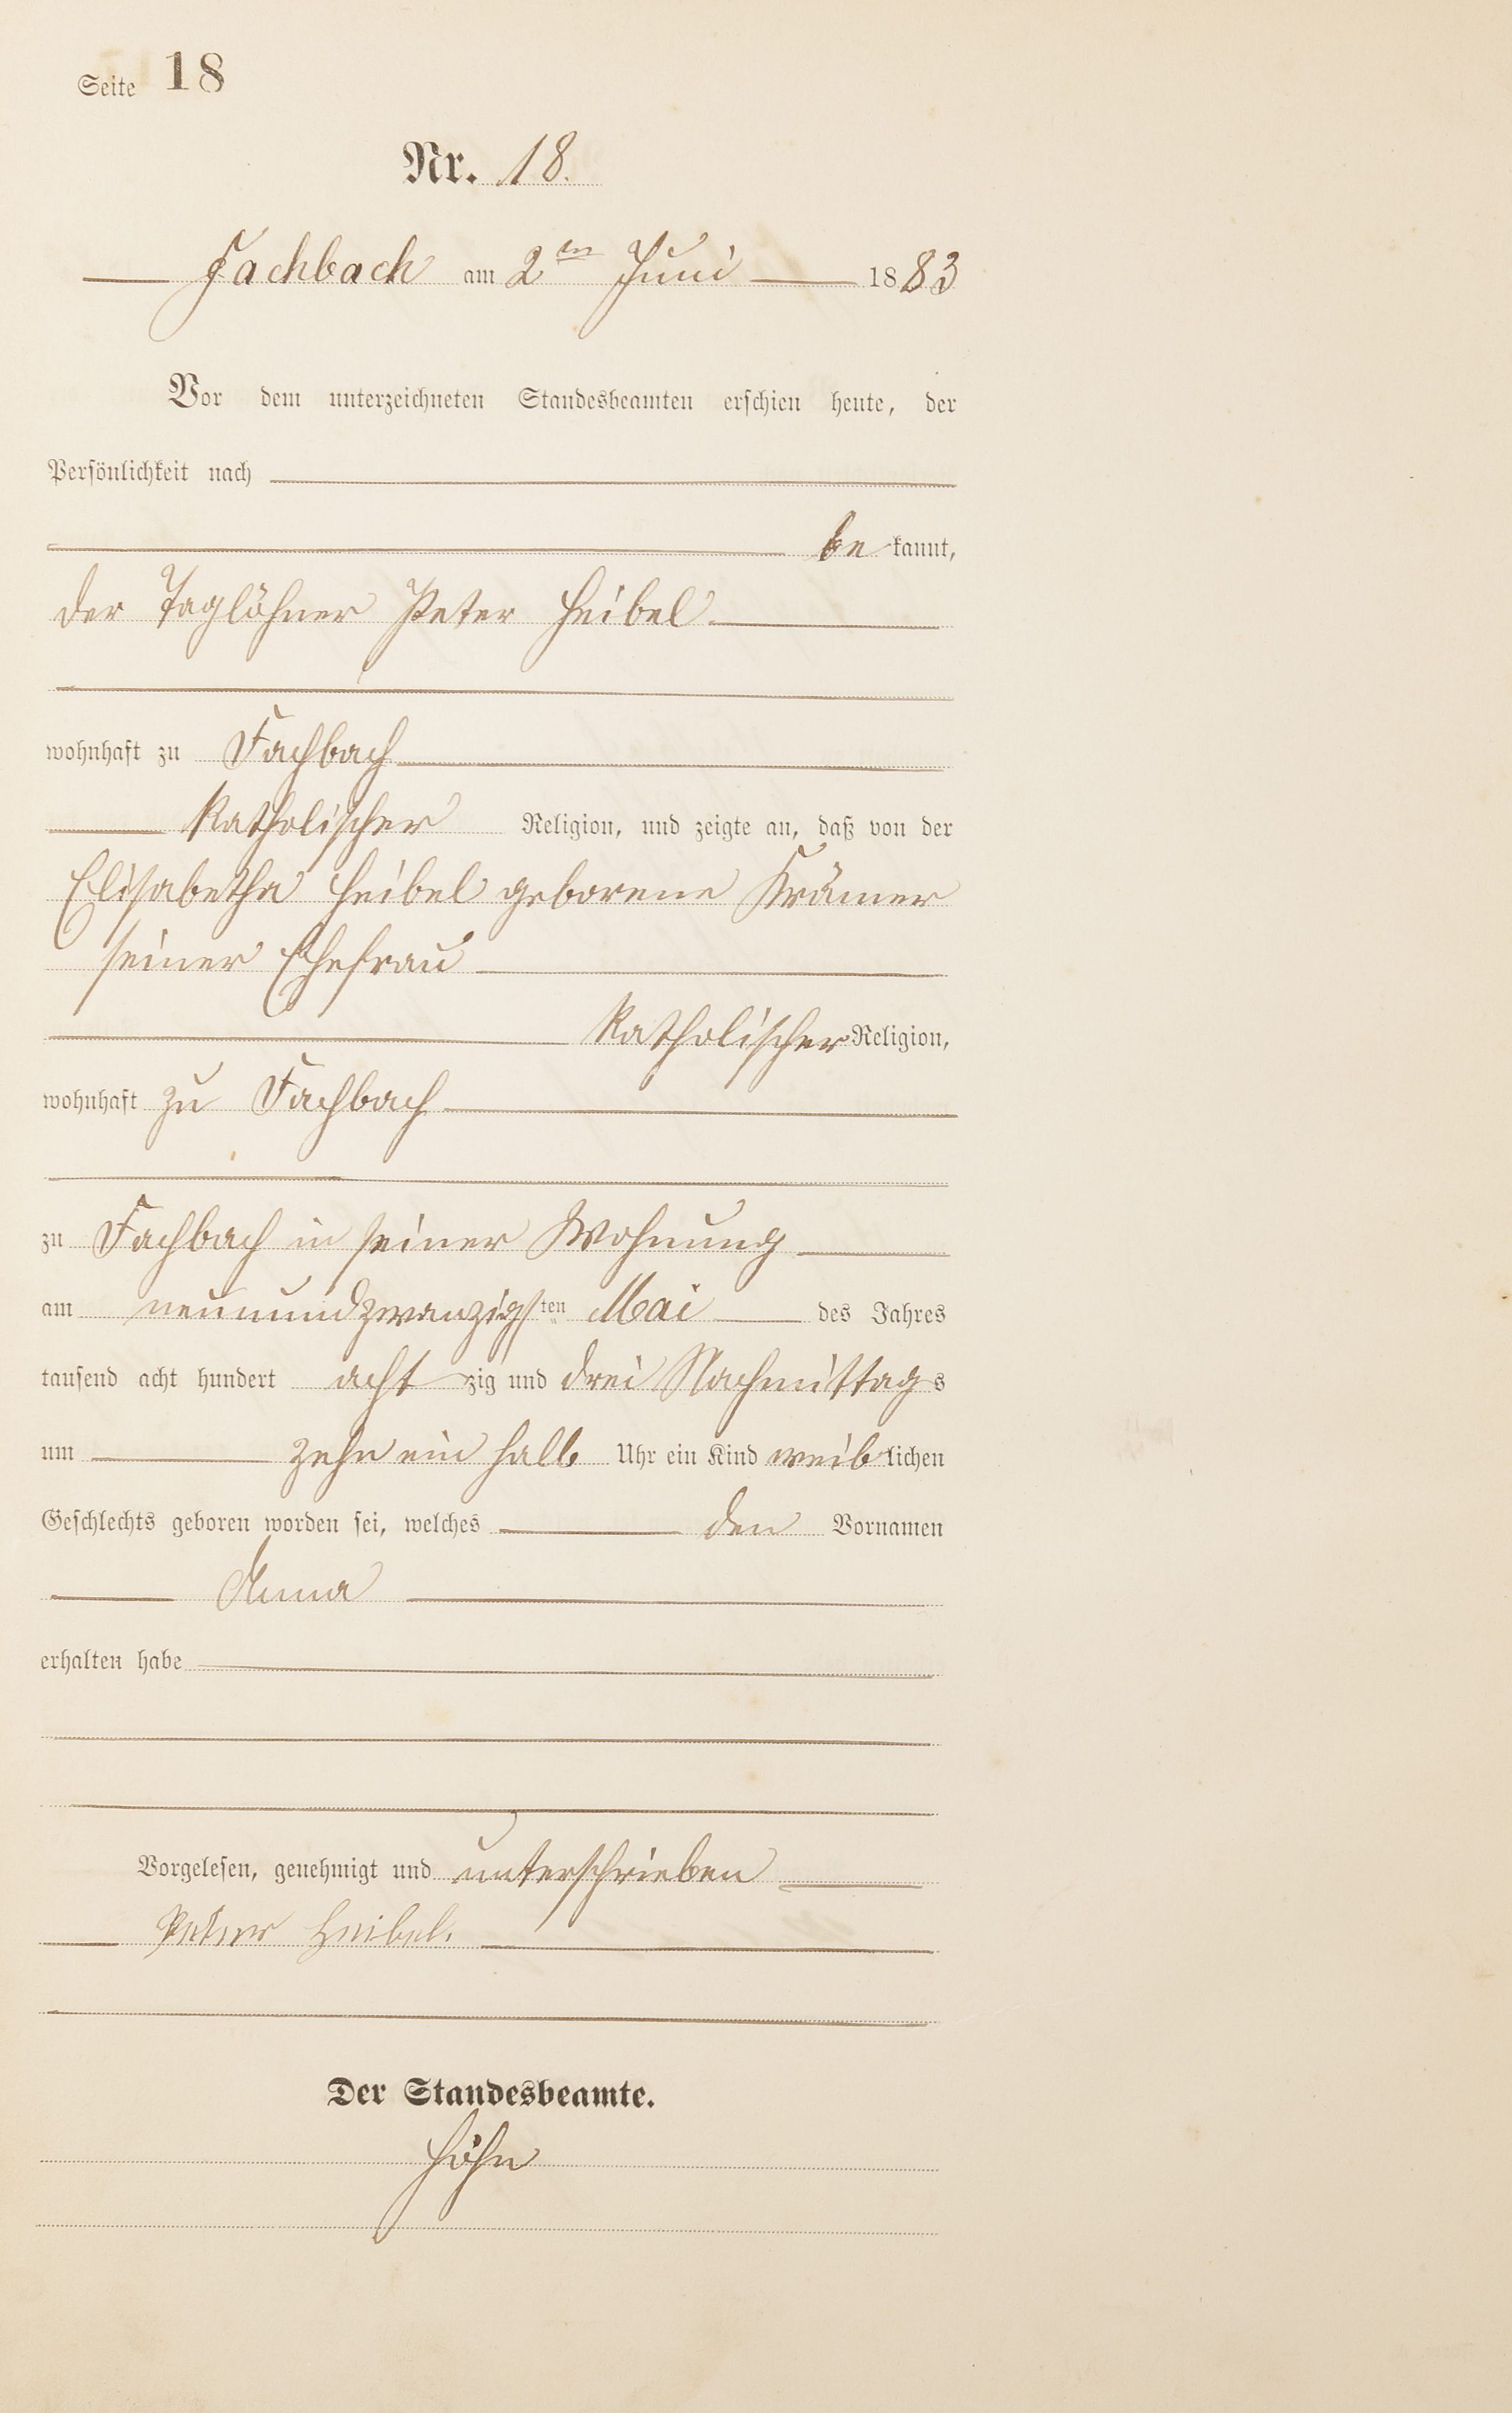 Seite 18
Nr. 18.
Fachbach am 2ten Juni 1883
Vor dem unterzeichneten Standesbeamten erschien heute, der
Persönlichkeit nach
be kannt,
der Taglöhner Peter Heibel
wohnhaft zu Fachbach
Katholischer Religion, und zeigte an, daß von der
Elisabetha Heibel geborene Krämer
seiner Ehefrau
Katholischer Religion,
wohnhaft zu Fachbach
zu Fachbach in seiner Wohnung
am neunundzwanzigsten Mai des Jahres
tausend acht hundert acht zig und drei Nachmittags
um zehn ein halb Uhr ein Kind weiblichen
Geschlechts geboren worden sei, welches den Vornamen
Anna
erhalten habe
Vorgelesen, genehmigt und unterschrieben
Peter Heibel.
Der Standesbeamte.
Höhn